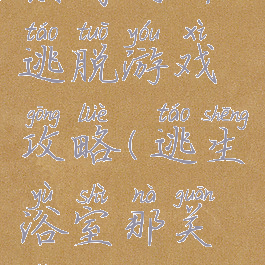 táo tuō yóu xì
逃脱游戏
gōng lüè táo shēng
攻略(逃生
yù shì nà guān
浴室那关